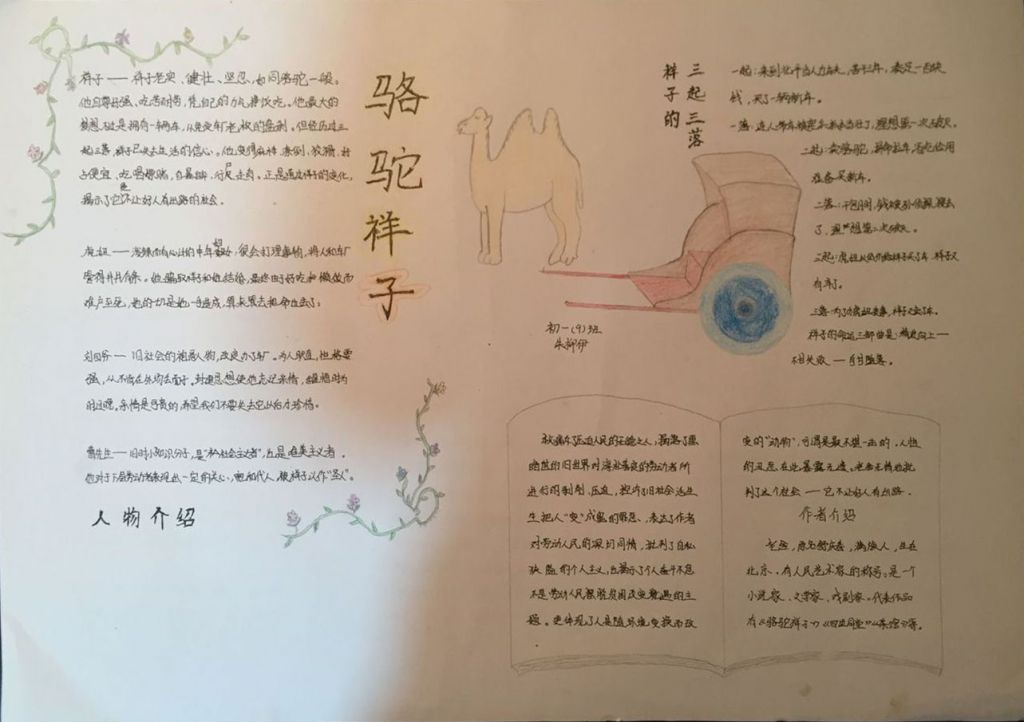 骆驼祥子
祥子——祥子老实、健壮、坚忍，如同骆驼一般。
他自尊好强、吃苦耐劳，凭自己的力气挣饭吃。他最大的
梦想就是拥有一辆车，从免受车厂老板的盘剥。但经历过三
起三落，祥子已失去生活的信心。他变得麻木、
便宜、吃喝嫖赌，自暴自弃，行尸走肉。正是通过祥子的变化，
揭示了它不让好人有出路的社会。
虎妞——泼辣而有心计的中年妇女，很会打理事物，将人和车厂
管得井井有条。他骗取祥子和他结婚，最终由于好吃和懒做而
难产至死，
刘四爷——旧社会的袍哥人物，改良办了车厂。为人耿直，性格要
强，从不肯在外场失面子。封建思想使他忘记亲情，
亲情是可贵的，希望我们不要失去它从后才珍惜。
曹先生——旧时小知识分子，是“社会主义者”，也是唯美主义者。
他对于下层劳动者表现出一定的关心，被祥子认作“圣人”。
人物介绍
初一(9)班
祥子的三起三落
一起：来到北平当人力车夫，苦干三年，凑足一百块
钱，买了一辆新车。
一落：连人带车被宪兵抓去当壮丁，理想第一次破灭。
二起：卖骆驼，拼命拉车，省吃俭用
准备买新车。
二落：干包月时，钱被孙侦探搜去
了，理想第二次破灭。
三起：虎妞以低价给祥子买了车，祥子又
有车了。
三落：为了虎妞丧事，祥子又卖了车。
祥子的命运三部曲是：向上——
不甘失败——自甘堕落。
人民的无德之人，揭露了黑
暗的旧世界对淳朴善良的劳动者所
进行的剥削、压迫，控诉了旧社会活生
生把人“变”成鬼的罪恶、表达了作者
对劳动人民的深切同情，批判了自私
狭隘的个人主义，也揭示了个人奋斗不是
不是劳动人民摆脱贫困改变境遇的主
题。更体现了人是随环境变换而改
变的“动物”，可谓是最不想一击的。人性
的丑恶在此暴露无遗。老舍无情地批
判了这个社会——它不让好人有出路。
作者介绍
老舍，原名舒庆春，满族人，生在
北京，有人民艺术家的称号。是一个
小说家、文学家、戏剧家。代表作品
有《骆驼祥子》《四世同堂》《茶馆》等。